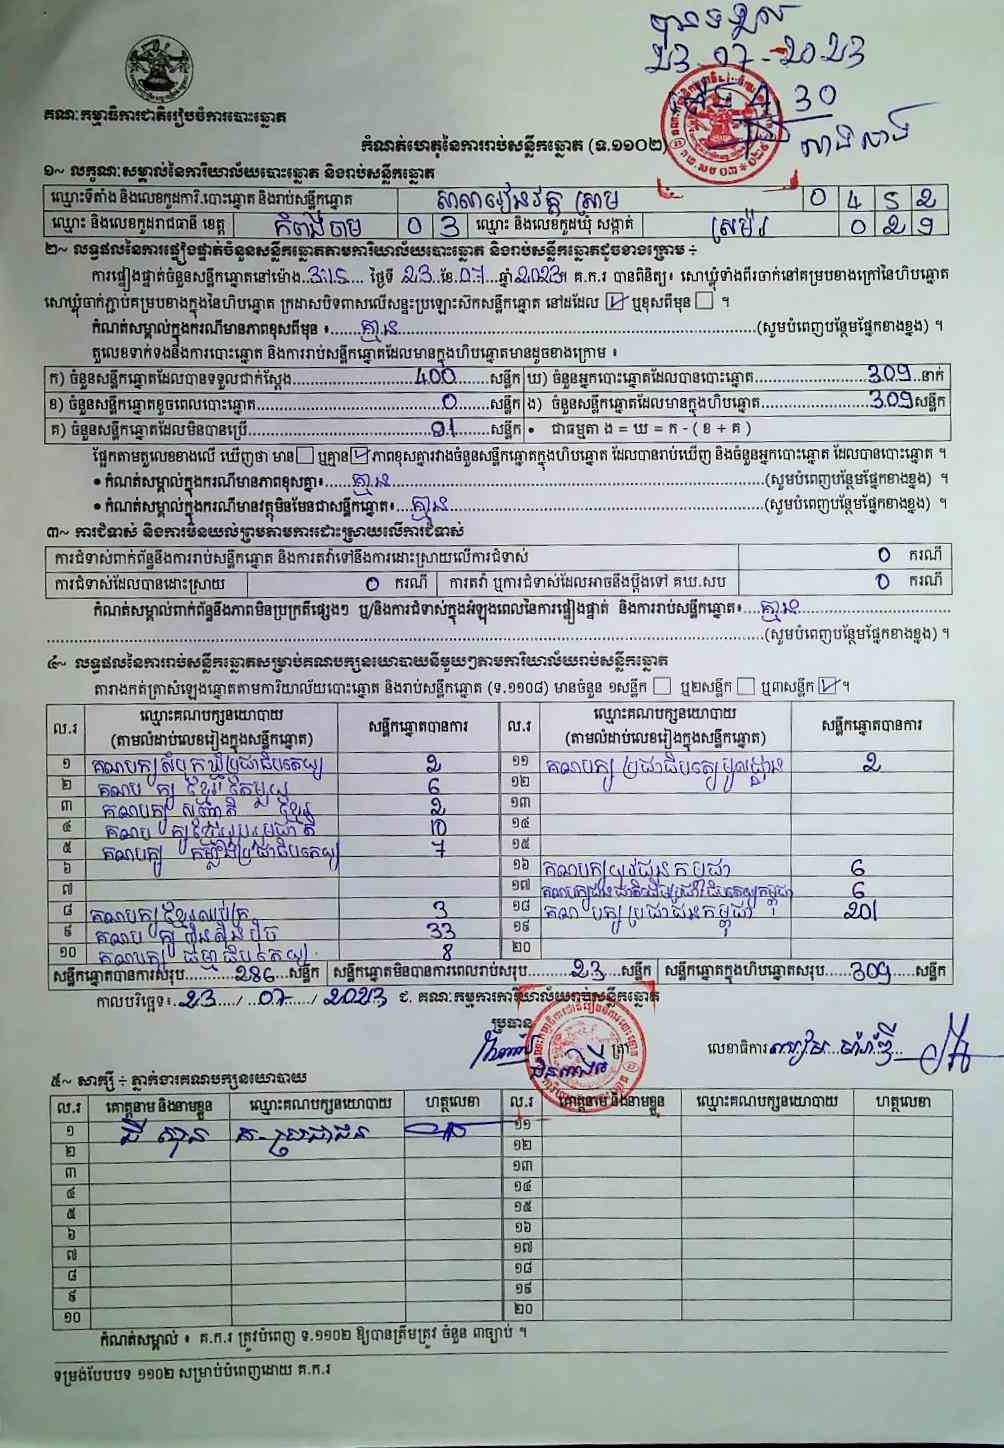 បានទទួល
23-07-2023
ម៉ោង 4:30
គណៈកម្មាធិការជាតិរៀបចំការបោះឆ្នោត
កំណត់ហេតុនៃការរាប់សន្លឹកឆ្នោត (ទ.១១០២)
១~ លក្ខណៈសម្គាល់នៃការិយាល័យបោះឆ្នោត និងរាប់សន្លឹកឆ្នោត
ឈ្មោះទីតាំង និងលេខកូដការិ.បោះឆ្នោត និងរាប់សន្លឹកឆ្នោត សាលារៀនវត្ត 0 4 5 2
ឈ្មោះ និងលេខកូដរាជធានី ខេត្ត កំពង់ចាម 0 3 ឈ្មោះ និងលេខកូដឃុំ សង្កាត់ 0 2 9
២~ លទ្ធផលនៃការផ្ទៀងផ្ទាត់ចំនួនសន្លឹកឆ្នោតតាមការិយាល័យបោះឆ្នោត និងរាប់សន្លឹកឆ្នោតដូចខាងក្រោម ÷
ការផ្ទៀងផ្ទាត់ចំនួនសន្លឹកឆ្នោតនៅម៉ោង 3:15 ថ្ងៃទី 23 ខែ 07 ឆ្នាំ 2023។ គ.ក.រ បានពិនិត្យ៖ សោឃ្លុំទាំងពីរចាក់នៅគម្របខាងក្រៅនៃហិបឆ្នោត
សោឃ្លុំចាក់ភ្ជាប់គម្របខាងក្នុងនៃហិបឆ្នោត ក្រដាសបិទពាសលើសន្ទះប្រឡោះស៊កសន្លឹកឆ្នោត នៅដដែល ☑ ឬខុសពីមុន ☐ ។
កំណត់សម្គាល់ក្នុងករណីមានភាពខុសពីមុន ៖ គ្មាន (សូមបំពេញបន្ថែមផ្នែកខាងខ្នង) ។
តួលេខទាក់ទងនឹងការបោះឆ្នោត និងការរាប់សន្លឹកឆ្នោតដែលមានក្នុងហិបឆ្នោតមានដូចខាងក្រោម ៖
ក) ចំនួនសន្លឹកឆ្នោតដែលបានទទួលជាក់ស្តែង 400 សន្លឹក ឃ) ចំនួនអ្នកបោះឆ្នោតដែលបានបោះឆ្នោត 309 នាក់
ខ) ចំនួនសន្លឹកឆ្នោតខូចពេលបោះឆ្នោត 0 សន្លឹក ង) ចំនួនសន្លឹកឆ្នោតដែលមានក្នុងហិបឆ្នោត 309 សន្លឹក
គ) ចំនួនសន្លឹកឆ្នោតដែលមិនបានប្រើ 91 សន្លឹក • ជាធម្មតា ង = ឃ = ក - ( ខ + គ )
ផ្អែកតាមតួលេខខាងលើ ឃើញថា មាន ☐ ឬគ្មាន ☑ ភាពខុសគ្នារវាងចំនួនសន្លឹកឆ្នោតក្នុងហិបឆ្នោត ដែលបានរាប់ឃើញ និងចំនួនអ្នកបោះឆ្នោត ដែលបានបោះឆ្នោត ។
• កំណត់សម្គាល់ក្នុងករណីមានភាពខុសគ្នា៖ គ្មាន (សូមបំពេញបន្ថែមផ្នែកខាងខ្នង) ។
• កំណត់សម្គាល់ក្នុងករណីមានវត្ថុមិនមែនជាសន្លឹកឆ្នោត៖ គ្មាន (សូមបំពេញបន្ថែមផ្នែកខាងខ្នង) ។
៣~ ការជំទាស់ និងការមិនយល់ព្រមតាមការដោះស្រាយលើការជំទាស់
ការជំទាស់ពាក់ព័ន្ធនឹងការរាប់សន្លឹកឆ្នោត និងការតវ៉ាទៅនឹងការដោះស្រាយលើការជំទាស់ 0 ករណី
ការជំទាស់ដែលបានដោះស្រាយ 0 ករណី ការតវ៉ា ឬការជំទាស់ដែលអាចនឹងប្តឹងទៅ គឃ.សប 0 ករណី
កំណត់សម្គាល់ពាក់ព័ន្ធនឹងភាពមិនប្រក្រតីផ្សេងៗ ឬ/និងការជំទាស់ក្នុងអំឡុងពេលនៃការផ្ទៀងផ្ទាត់ និងការរាប់សន្លឹកឆ្នោត៖ គ្មាន
(សូមបំពេញបន្ថែមផ្នែកខាងខ្នង) ។
៤~ លទ្ធផលនៃការរាប់សន្លឹកឆ្នោតសម្រាប់គណបក្សនយោបាយនីមួយៗតាមការិយាល័យរាប់សន្លឹកឆ្នោត
តារាងកត់ត្រាសំឡេងឆ្នោតតាមការិយាល័យបោះឆ្នោត និងរាប់សន្លឹកឆ្នោត (ទ.១១០៨) មានចំនួន ១សន្លឹក ☐ ឬ២សន្លឹក ☐ ឬ៣សន្លឹក ☑ ។
ល.រ ឈ្មោះគណបក្សនយោបាយ (តាមលំដាប់លេខរៀងក្នុងសន្លឹកឆ្នោត) សន្លឹកឆ្នោតបានការ ល.រ ឈ្មោះគណបក្សនយោបាយ (តាមលំដាប់លេខរៀងក្នុងសន្លឹកឆ្នោត) សន្លឹកឆ្នោតបានការ
១ គណបក្សសំបុកឃ្មុំប្រជាធិបតេយ្យ 2 ១១ គណបក្សប្រជាធិបតេយ្យមូលដ្ឋាន 2
២ គណបក្សខ្មែរ 6 ១២
៣ គណបក្ស សញ្ជាតិខ្មែរ 2 ១៣
៤ គណបក្សខ្មែររួបរួមជាតិ 10 ១៤
៥ គណបក្ស កម្លាំងប្រជាធិបតេយ្យ 7 ១៥
៦ ១៦ គណបក្សយុវជនកម្ពុជា 6
៧ ១៧ 6
៨ គណបក្សខ្មែរឈប់ក្រ 3 ១៨ គណបក្សប្រជាជនកម្ពុជា 201
៩ គណបក្សហ្វ៊ុនស៊ិនប៉ិច 33 ១៩
១០ គណបក្ស ធម្មាធិបតេយ្យ 8 ២០
សន្លឹកឆ្នោតបានការសរុប 286 សន្លឹក សន្លឹកឆ្នោតមិនបានការពេលរាប់សរុប 23 សន្លឹក សន្លឹកឆ្នោតក្នុងហិបឆ្នោតសរុប 309 សន្លឹក
កាលបរិច្ឆេទ៖ 23 / 07 / 2023 ជ. គណៈកម្មការការិយាល័យរាប់សន្លឹកឆ្នោត
ប្រធាន ត្រា លេខាធិការ
៥~ សាក្សី ÷ ភ្នាក់ងារគណបក្សនយោបាយ
ល.រ គោត្តនាម និងនាមខ្លួន ឈ្មោះគណបក្សនយោបាយ ហត្ថលេខា ល.រ គោត្តនាម និងនាមខ្លួន ឈ្មោះគណបក្សនយោបាយ ហត្ថលេខា
១ គ-ប្រជាជន ១១
២ ១២
៣ ១៣
៤ ១៤
៥ ១៥
៦ ១៦
៧ ១៧
៨ ១៨
៩ ១៩
១០ ២០
កំណត់សម្គាល់ ៖ គ.ក.រ ត្រូវបំពេញ ទ.១១០២ ឱ្យបានត្រឹមត្រូវ ចំនួន ៣ច្បាប់ ។
ទម្រង់បែបបទ ១១០២ សម្រាប់បំពេញដោយ គ.ក.រ